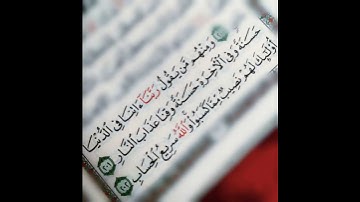 وَمِنْهُم مَّن يَقُولُ رَبَّنَآ ءَاتِنَا فِى ٱلدُّنْيَا
حَسَنَةً وَفِى ٱلْـَٔاخِرَةِ حَسَنَةً وَقِنَا عَذَابَ ٱلنَّارِ ٢٠١
أُو۟لَـٰٓئِكَ لَهُمْ نَصِيبٌ مِّمَّا كَسَبُوا۟ وَٱللَّهُ سَرِيعُ ٱلْحِسَابِ ٢٠٢